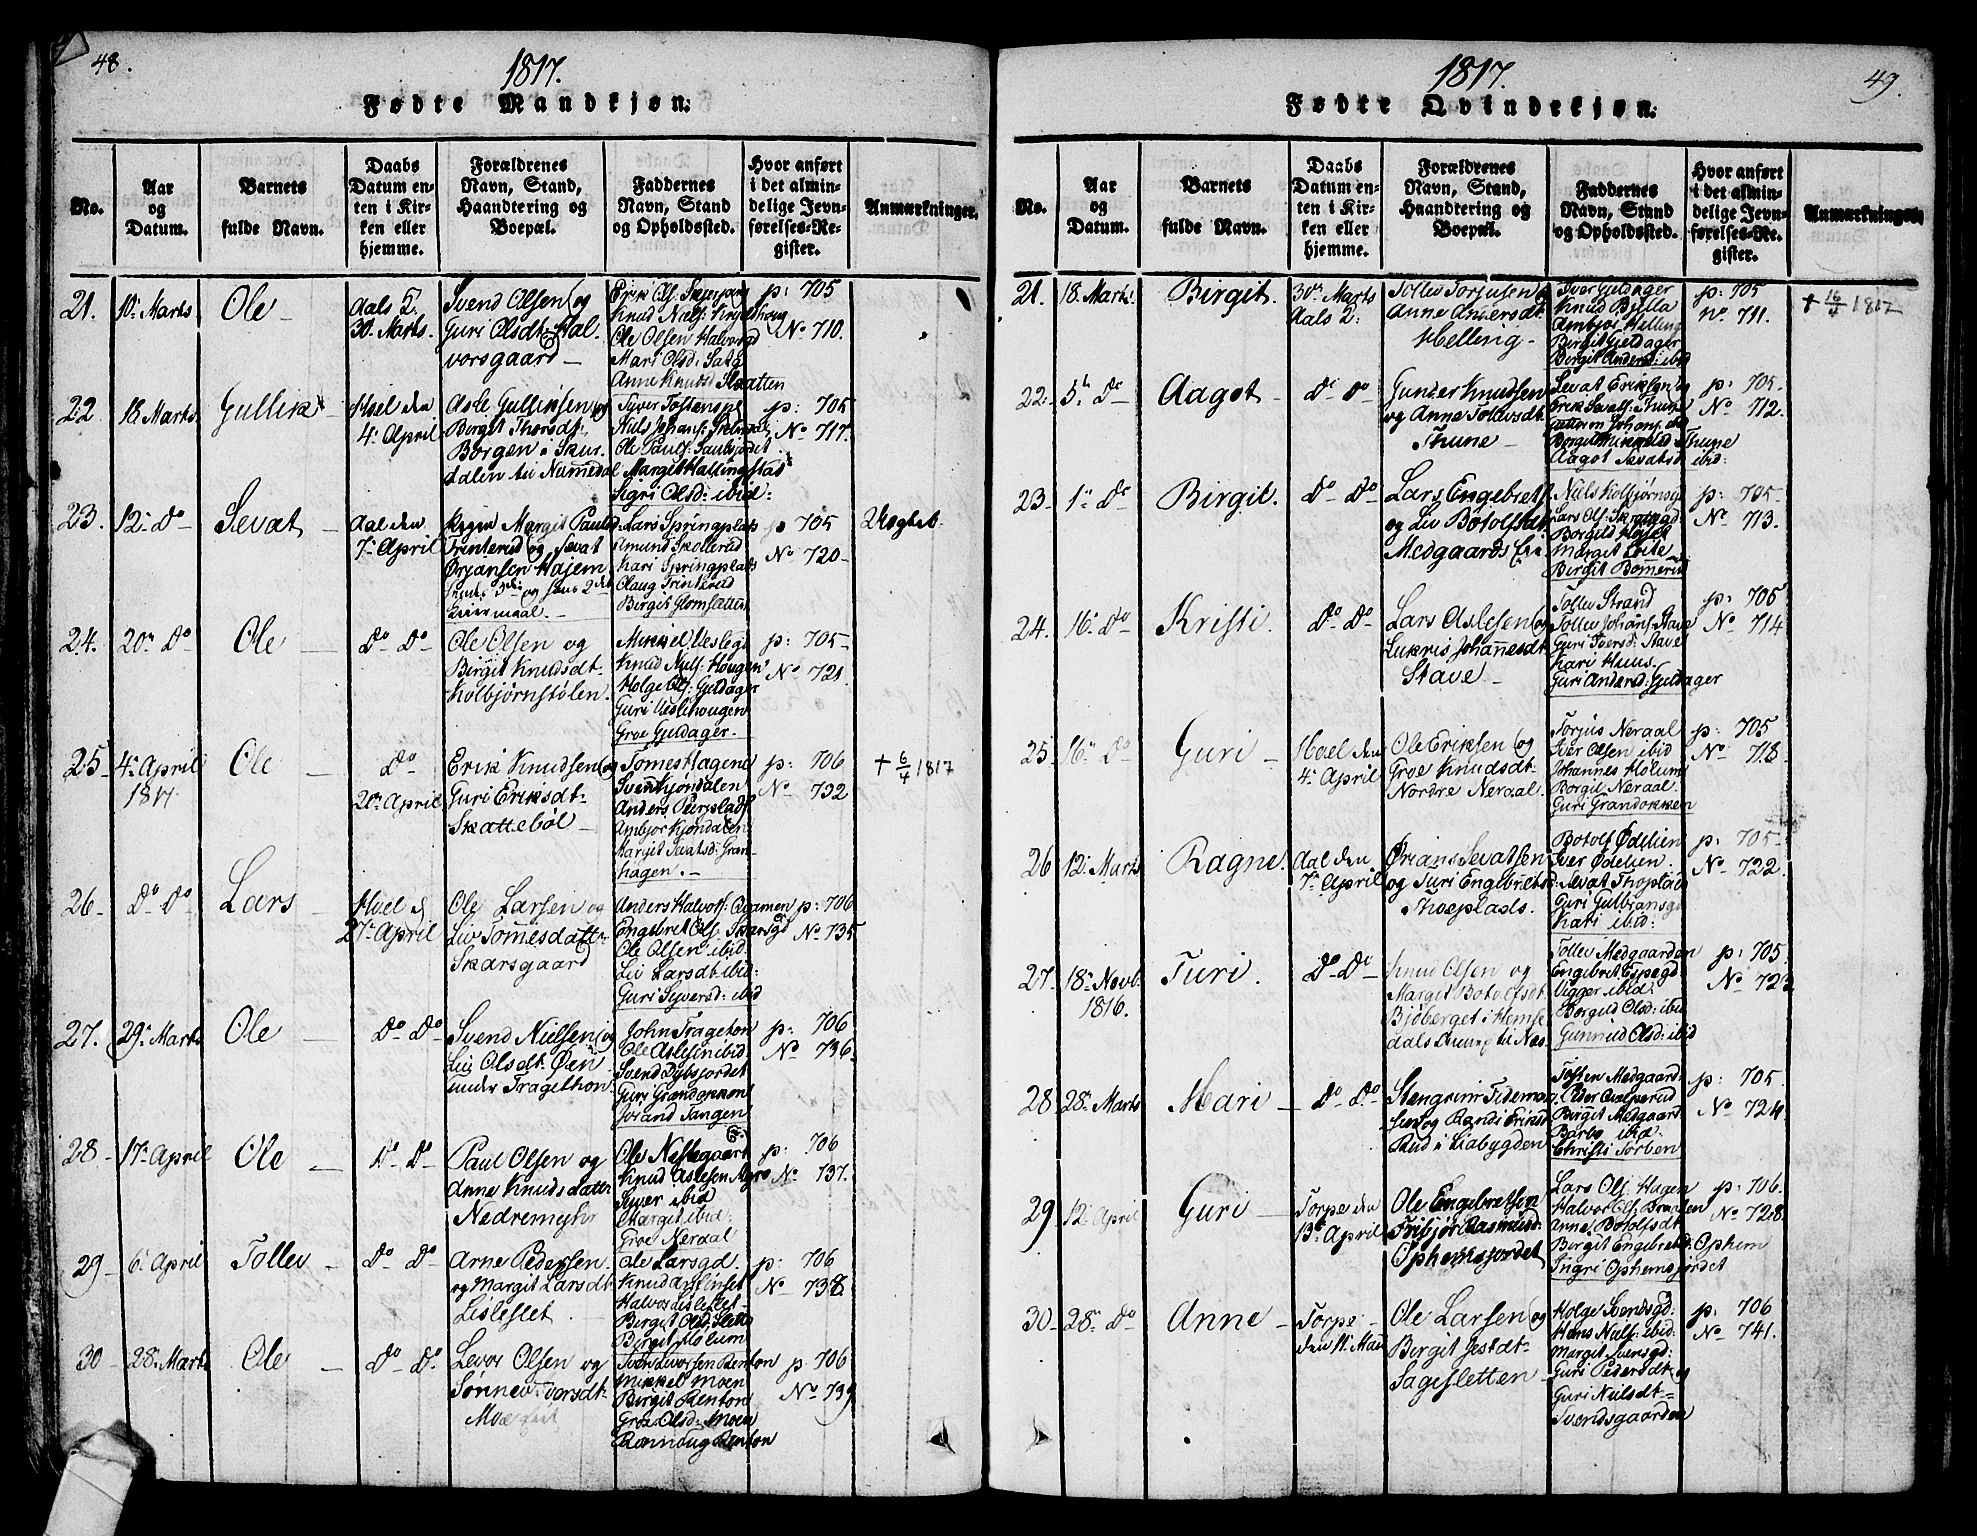 48.
1817.
Fødte Mandkjøn.
No.
Aar og Datum.
Barnets fulde Navn.
Daabs Datum enten i Kirken eller hjemme.
Forældrenes Navn, Stand, Haandtering og Boepæl.
Faddernes Navn, Stand og Opholdssted.
Hvor anført i det almindelige Jevnførelses-Register.
Anmærkninger.
21. 10. Marts Ole
Aals 2. 30. Marts.
Svend Olsen og
Guri Olsdt: Hal
vorsgaard
Knud Niels:
Ole Olsen Halvorsgd
Mari Olsd:
Anne Knudsd Slaatten
p: 705
No 710.
22 18. Marts Gullik
Hoel den
4. April
Asle Gulliksen og
Birgit Thorsdt:
Borgen i Skur
dalen til Numedal
Syver
Niels Johans:
Ole Pauls:
Margit Hallingstad
Sigri Olsd: ibid:
p: 705
No 717.
23. 12. Do Sevat
Aal den
7. April
Pigen Margit Paulsd:
Trinterud og Sevat
Ørjansen Hajem
Lars Springplads
Amund Skollerud
Kari Springplads
Olaug Trinterud
Birgit
p 705
No 720
Uægte
24. 20. Do Ole
Do Do
Ole Olsen og
Birgit Knudsdt.
Kolbjørnstølen.
Knud Niels: Hougen
Holge Ols: Gjeldager
Guri
Groe Gjeldager.
p: 705
No 721
25 4. April
1817
Ole
Do
20. April
Erik Knudsen og
Guri Eriksdt
Skattebøl
Tomes Hagene
Svend Kjøndalen
Anders
Ambjør Kjøndalen
Margit Sevatsd: Gran
hagen.
p: 706
No 732
+ 6/4 1817
26 Do Do Lars
Hoel d
27. April
Ole Larsen og
Liv Tomesdatter
Skarsgaard
Anders Halvors: Qvamen
Engebret Ols: Skarsgd
Ole Olsen ibid:
Liv Larsdt ibid:
Guri Syversd: ibid
p: 706
No 735
27. 29. Marts Ole
Do Do
Svend Nielsen og
Liv Olsdt: Øen
under Tragethon
John Trageton
Ole Aslesen ibid:
Svend Dybsjordet
Guri Grandokken
Jorand Tangen
p: 706
No 736
28 17. April Ole
Do Do
Paul Olsen og
Anne Knudsdatter
Nedre
Ole Nestegaard
Knud Aslesen
Syver ibid
Margit ibid:
Groe Neraal
p: 706
No 737.
29 6. April Tollev
Do Do
Arne Pedersen
og Margit Larsdt
Lisleslet
Ole Larsgd.
Knud
Halvor Lisleslet
Birgit Olsd:
Birgit Molum
p: 706
No 738
30 28. Marts Ole
Do Do.
Levor Olsen og
Sønnev
Sven Levorsen Renton
Mikkel Moen
Birgit Renton
Groe Olsd: Moen
Rønnoug Renton
p 706
No 739
1817.
49.
Fødte Qvindekjøn.
No.
Aar og Datum.
Barnets fulde Navn.
Daabs Datum enten i Kirken eller hjemme.
Forældrenes Navn, Stand, Haandtering og Boepæl.
Faddernes Navn, Stand og Opholdssted.
Hvor anført i det almindelige Jevnførelses-Register.
Anmærkninger.
21. 18. Marts Birgit.
30. Marts
Aals 2:
Tollev Torjusen og
Anne Andersdt
Helling
Iver Gjeldager
Knud Bylla
Ambjør Helling
Birgit Gjeldager
Birgit Andersd: ibid
p: 705
No 711.
+ 16/4 1817
22. 5. Do Aagot
Do Do
Gunder Knudsen
og Anne Tollevsdt
Thune
Sevat Eriksen og
Erik Sevats: Thune
Aagot Sevatsd ibid:
p: 705
No 712.
23. 1. Do Birgit.
Do Do
Lars Engebrets:
og Liv Botolfsdt
Medgaards
Niels Kolbjørnsgd
Lars Ols:
Margit
Birgit
p: 705
No 713.
24. 16. Do Kristi.
Do Do
Lars Aslesen og
Lukris Johannesdt.
Stave
Tollev Strand
Tollev Johans: Stave
Guri Iversd: Stave
Kari Huus.
Guri Andersd: Gjeldager
p: 705
No 714
25 16. Do Guri
Hoel den
4. April
Ole Eriksen og
Groe Knudsdt
Nordre Neraal
Torjus Neraal
Iver Olsen ibid
Johannes Molum
Borgil Neraal
Guri Grandokken
p: 705
No 718
26 12. Marts Ragne.
Aal den
7. April
Ørjans Sevatsen
og Turi Engebretsd:
Thoeplads.
Botolf Ødelien
Iver Ødelien.
Sevat Thoplads
Guri Gulbransgd
Kari ibid:
p: 705
No 722.
27. 18. Novb.
1816.
Turi.
Do Do
Knud Olsen og
Margit Botolfsdt
Bjøberget i Hemse
dals
Tollev Medgaarden
Engebret Espegd:
Vigger ibid:
Borgild Olsd: ibid
Gunnild Olsd: ibid
p: 705
No 723
28 28. Marts Mari
Do Do
Stengrim Tideman
sen og Randi Eriksd
Rud i Liabygden
Tosten Medgaard:
Peder
Birgit Medgaard
Barbo ibid:
Christi Torben
p: 705
No 724
29 12. April Guri
Torpe den
13. April
Ole Engebretsen
Tribjør Rasmusd
Ophemsjordet
Lars Ols: Hagen
Halvor Ols: Braaten
Anne Botolfsdt
Birgit Engebretsd: Ophem
Sigri Ophemsjordet
p: 706.
No 728
30 28. Do Anne
Torpe
den 11. Mai
Ole Larsen og
Birgit
Sagesletten
Holge Svendsgd:
Hans Niels: ibid:
Margit Svensgd:
Guri Pedersdt og
Guri Nielsdt
Svendsgaarden
p: 706
No 741.